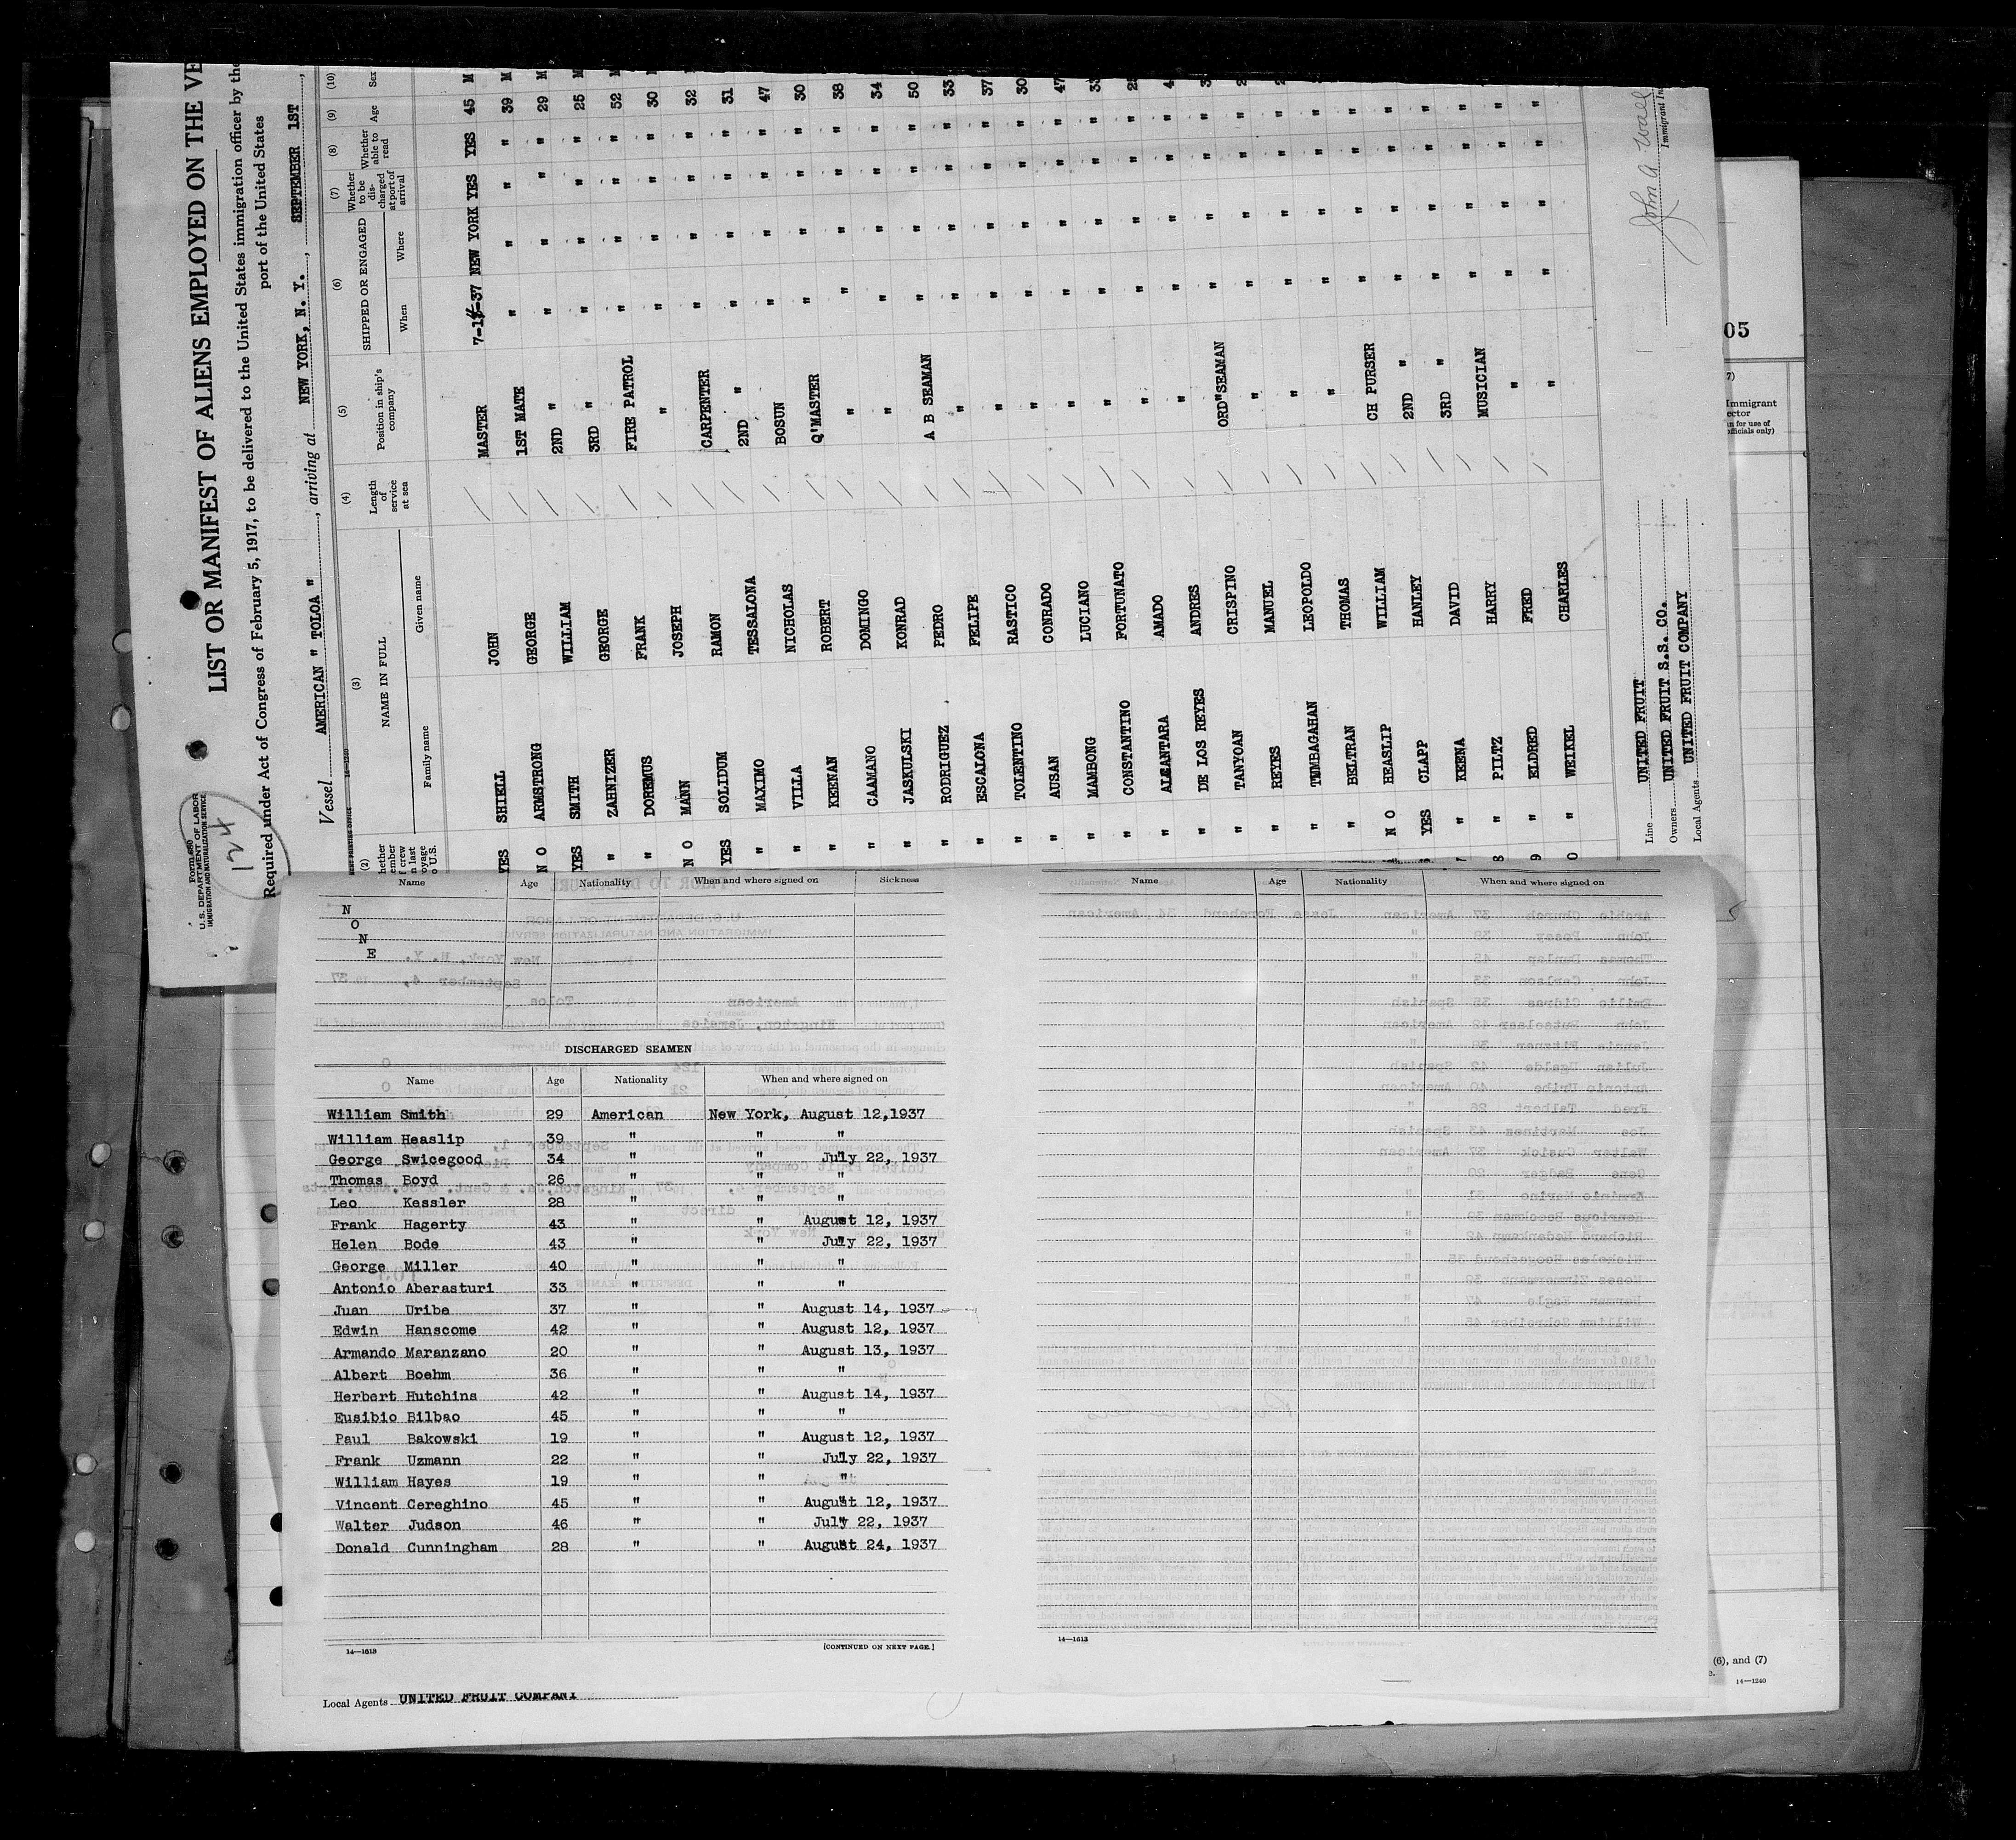 Form 680
U. S. DEPARTMENT OF LABOR
IMMIGRATION AND NATURALIZATION SERVICE
124
LIST OR MANIFEST OF ALIENS EMPLOYED ON THE VE
Required under Act of Congress of February 5, 1917, to be delivered to the United States immigration officer by the
port of the United States
Vessel AMERICAN " TOLOA ", arriving at NEW YORK, N. Y., SEPTEMBER 1ST,
(2) (3) (4) (5) (6) (7) (8) (9) (10)
NAME IN FULL Length of service at sea Position in ship's company SHIPPED OR ENGAGED Whether to be discharged at port of arrival Whether able to read Age Sex
Family name Given name When Where
YES SHIELL JOHN MASTER 7-1 -37 NEW YORK YES YES 45 M
N O ARMSTRONG GEORGE 1ST MATE " " " " 39 M
YES SMITH WILLIAM 2ND " " " " " 29 M
" ZAHNIZER GEORGE 3RD " " " " " 25 M
" DOREMUS FRANK FIRE PATROL " " " " 52
N O MANN JOSEPH " " " " " 30
YES SOLIDUM RAMON CARPENTER " " " " 32
" MAXIMO TESSALONA 2ND " " " " " 31
" VILLA NICHOLAS BOSUN " " " " 47
" KEENAN ROBERT Q'MASTER " " " " 30
" CAAMANO DOMINGO " " " " " 38
" JASKULSKI KONRAD " " " " " 34
" RODRIGUEZ PEDRO A B SEAMAN " " " " 50
" ESCALONA FELIPE " " " " " 33
" TOLENTINO RASTICO " " " " " 37
" AUSAN CONRADO " " " " " 30
" MAMBONG LUCIANO " " " " " 47
" CONSTANTINO FORTUNATO " " " " "
" ALCANTARA AMADO " " " " "
" DE LOS REYES ANDRES " " " " "
" TANYOAN CRISPINO ORD"SEAMAN " " " "
" REYES MANUEL " " " " "
" TUMBAGAHAN LEOPOLDO " " " " "
" BELTRAN THOMAS " " " " "
N O HEASLIP WILLIAM CH PURSER " " " "
YES CLAPP HANLEY 2ND " " " " "
" KEENA DAVID 3RD " " " " "
8 " PILTZ HARRY MUSICIAN " " " "
9 " ELDRED FRED " " " " "
0 " WEIKEL CHARLES " " " " "
Line UNITED FRUIT
Owners UNITED FRUIT S.S. CO.
Local Agents UNITED FRUIT COMPANY
John A Wall
05
Immigrant
Name Age Nationality When and where signed on Sickness
N
O
N
E
DISCHARGED SEAMEN
Name Age Nationality When and where signed on
William Smith 29 American New York, August 12,1937
William Heaslip 39 " " "
George Swicegood 34 " " July 22, 1937
Thomas Boyd 26 " " "
Leo Kessler 28 " " "
Frank Hagerty 43 " " August 12, 1937
Helen Bode 43 " " July 22, 1937
George Miller 40 " " "
Antonio Aberasturi 33 " " "
Juan Uribe 37 " " August 14, 1937
Edwin Hanscome 42 " " August 12, 1937
Armando Maranzano 20 " " August 13, 1937
Albert Boehm 36 " " "
Herbert Hutchins 42 " " August 14, 1937
Eusibio Bilbao 45 " " "
Paul Bakowski 19 " " August 12, 1937
Frank Uzmann 22 " " July 22, 1937
William Hayes 19 " " "
Vincent Cereghino 45 " " August 12, 1937
Walter Judson 46 " " July 22, 1937
Donald Cunningham 28 " " August 24, 1937
14—1613 [CONTINUED ON NEXT PAGE.]
Name Age Nationality When and where signed on
14—1613
(6), and (7)
14—1240
Local Agents UNITED FRUIT COMPANY